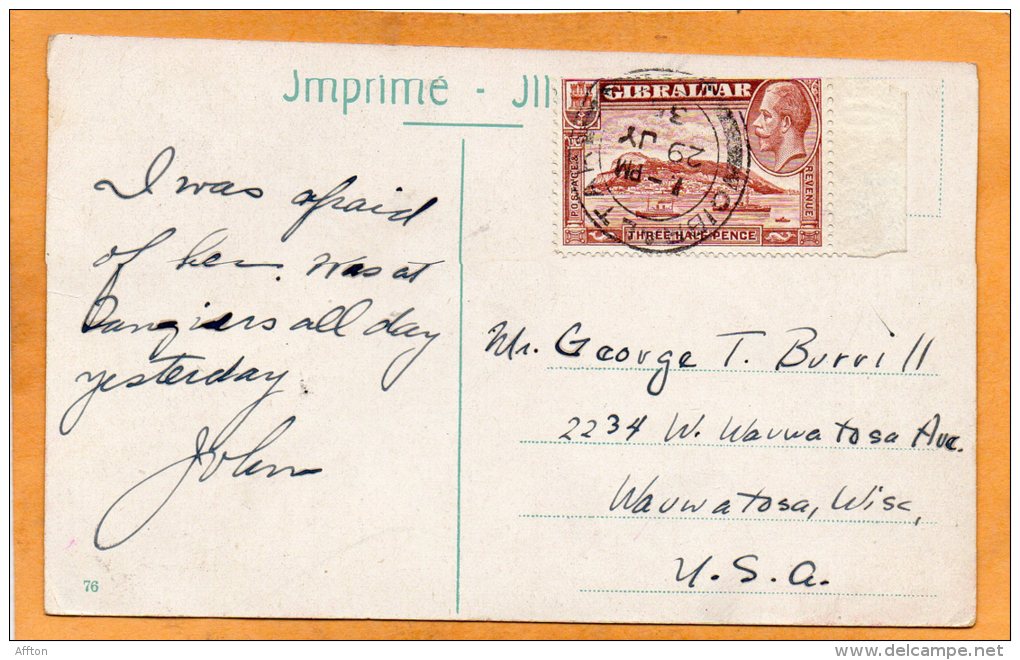 Imprimé -
GIBRALTAR
POSTAGE &
REVENUE
THREE HALF PENCE
1 - PM
29 JY
I was afraid
of her. Was at
Tangiers all day
yesterday
John
Mr. George T. Burrill
2234 W. Wauwatosa Ave.
Wauwatosa, Wisc,
U. S. A.
76
Affton
www.delcampe.net